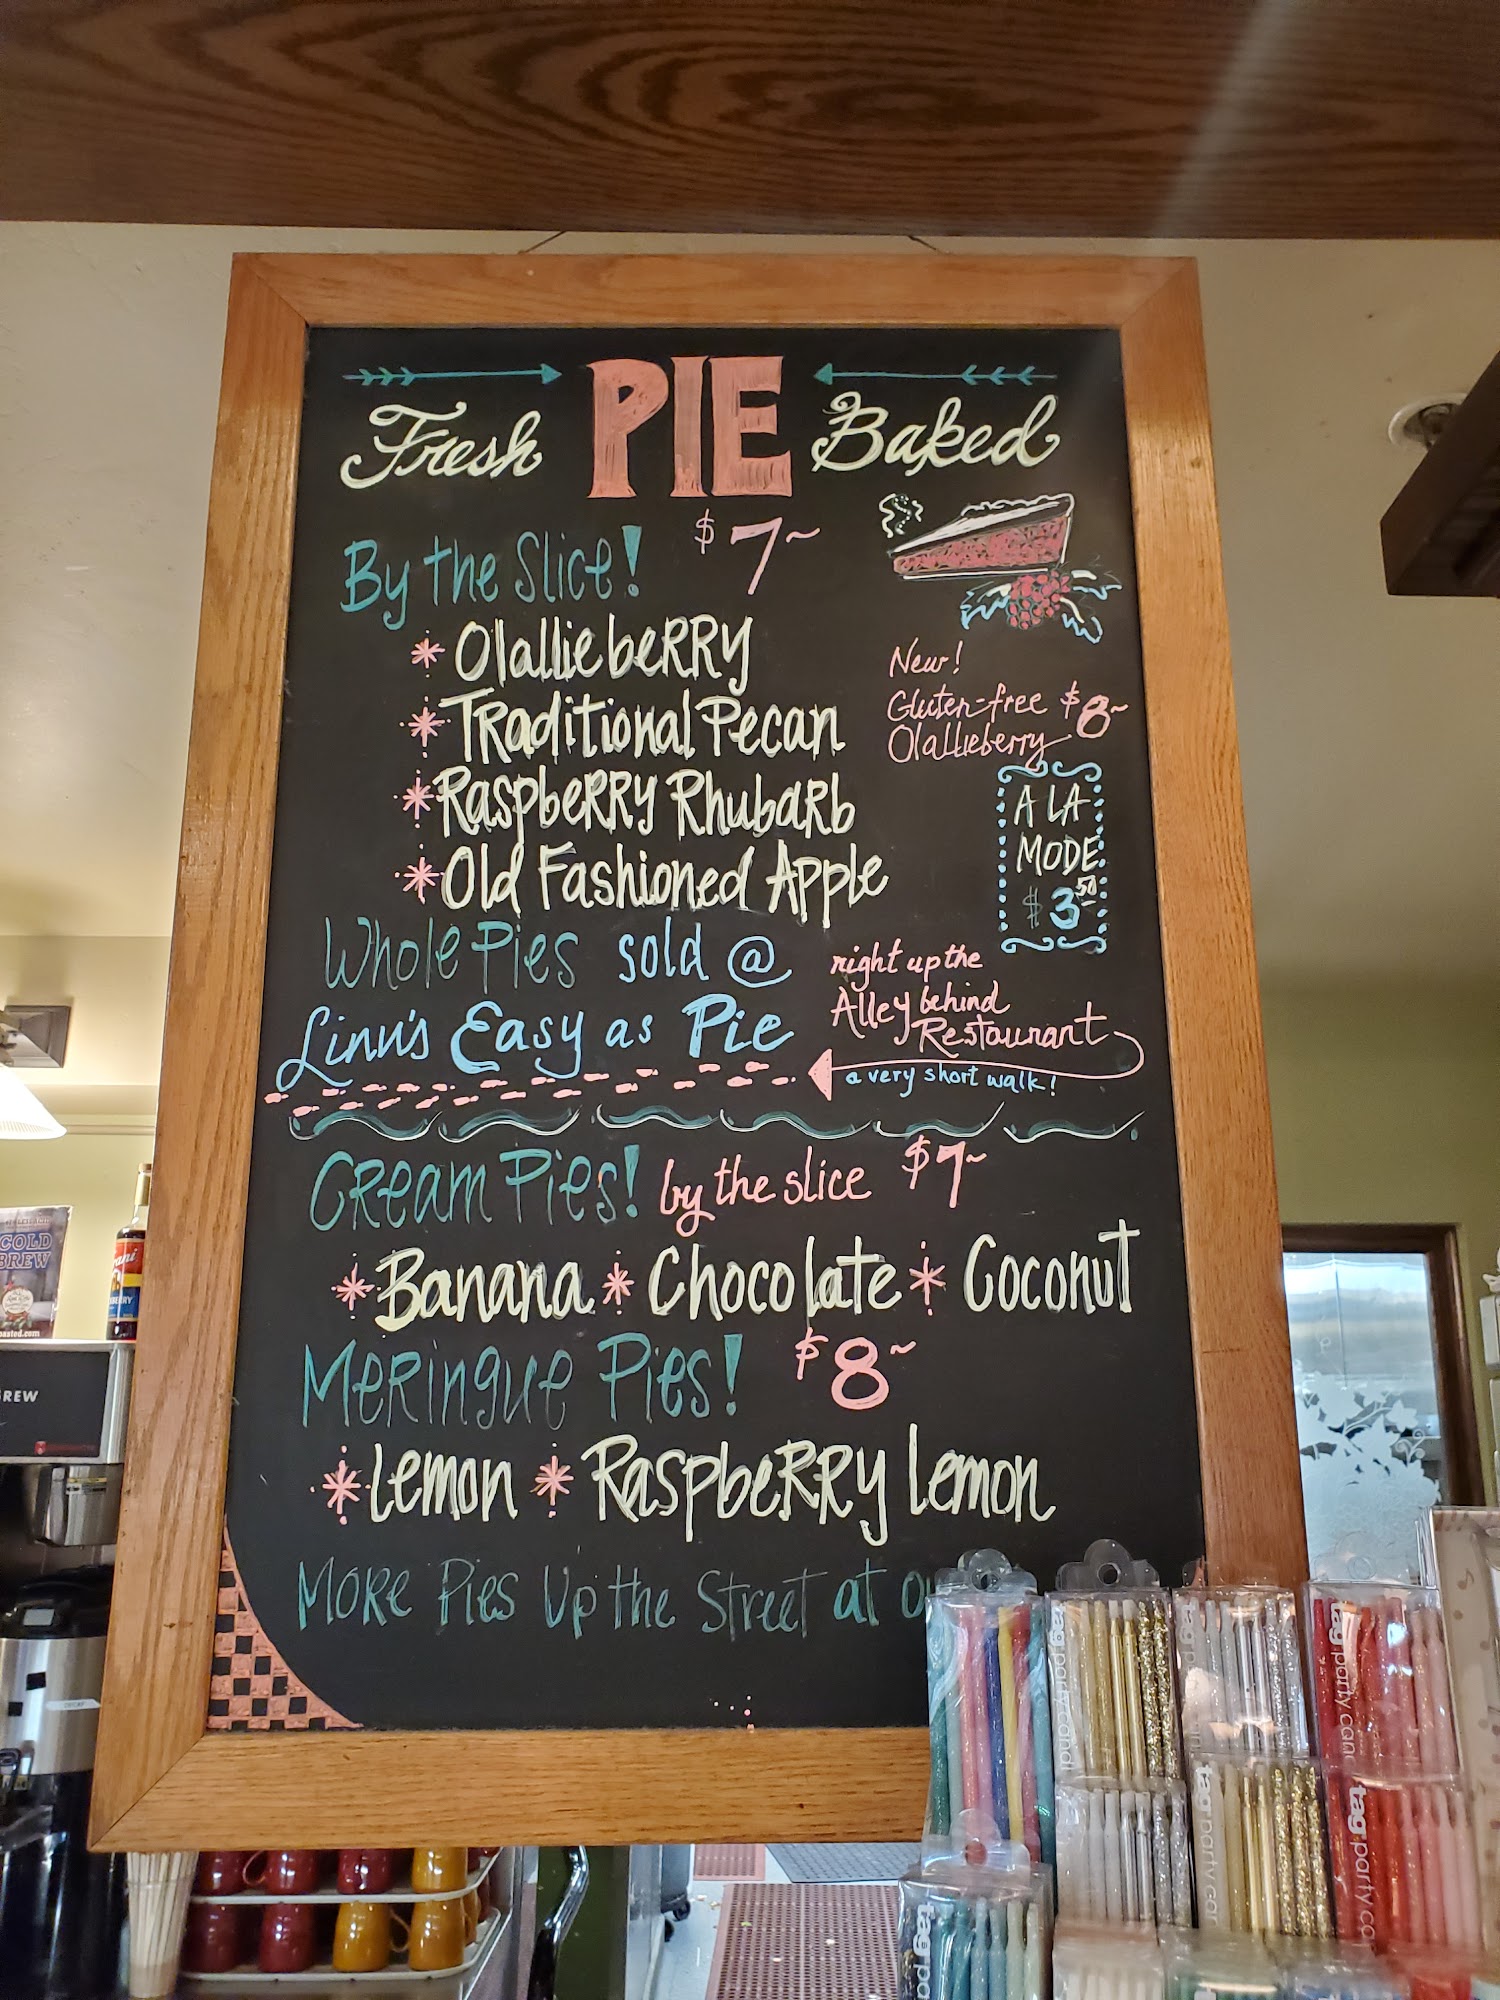 PIE
Fresh Baked
By the Slice! $7~
Olallieberry
Traditional Pecan
Raspberry Rhubarb
Old Fashioned Apple
New!
Gluten-free $8~
Olallieberry
A LA
MODE
$3.50
Whole Pies sold @
Linn's Easy as Pie
right up the
Alley behind
Restaurant
a very short walk!
Cream Pies! by the slice $7~
Banana * Chocolate * Coconut
Meringue Pies! $8~
Lemon * Raspberry Lemon
More Pies Up the Street at
COLD
BREW
tag party
tag party
tag party
tag